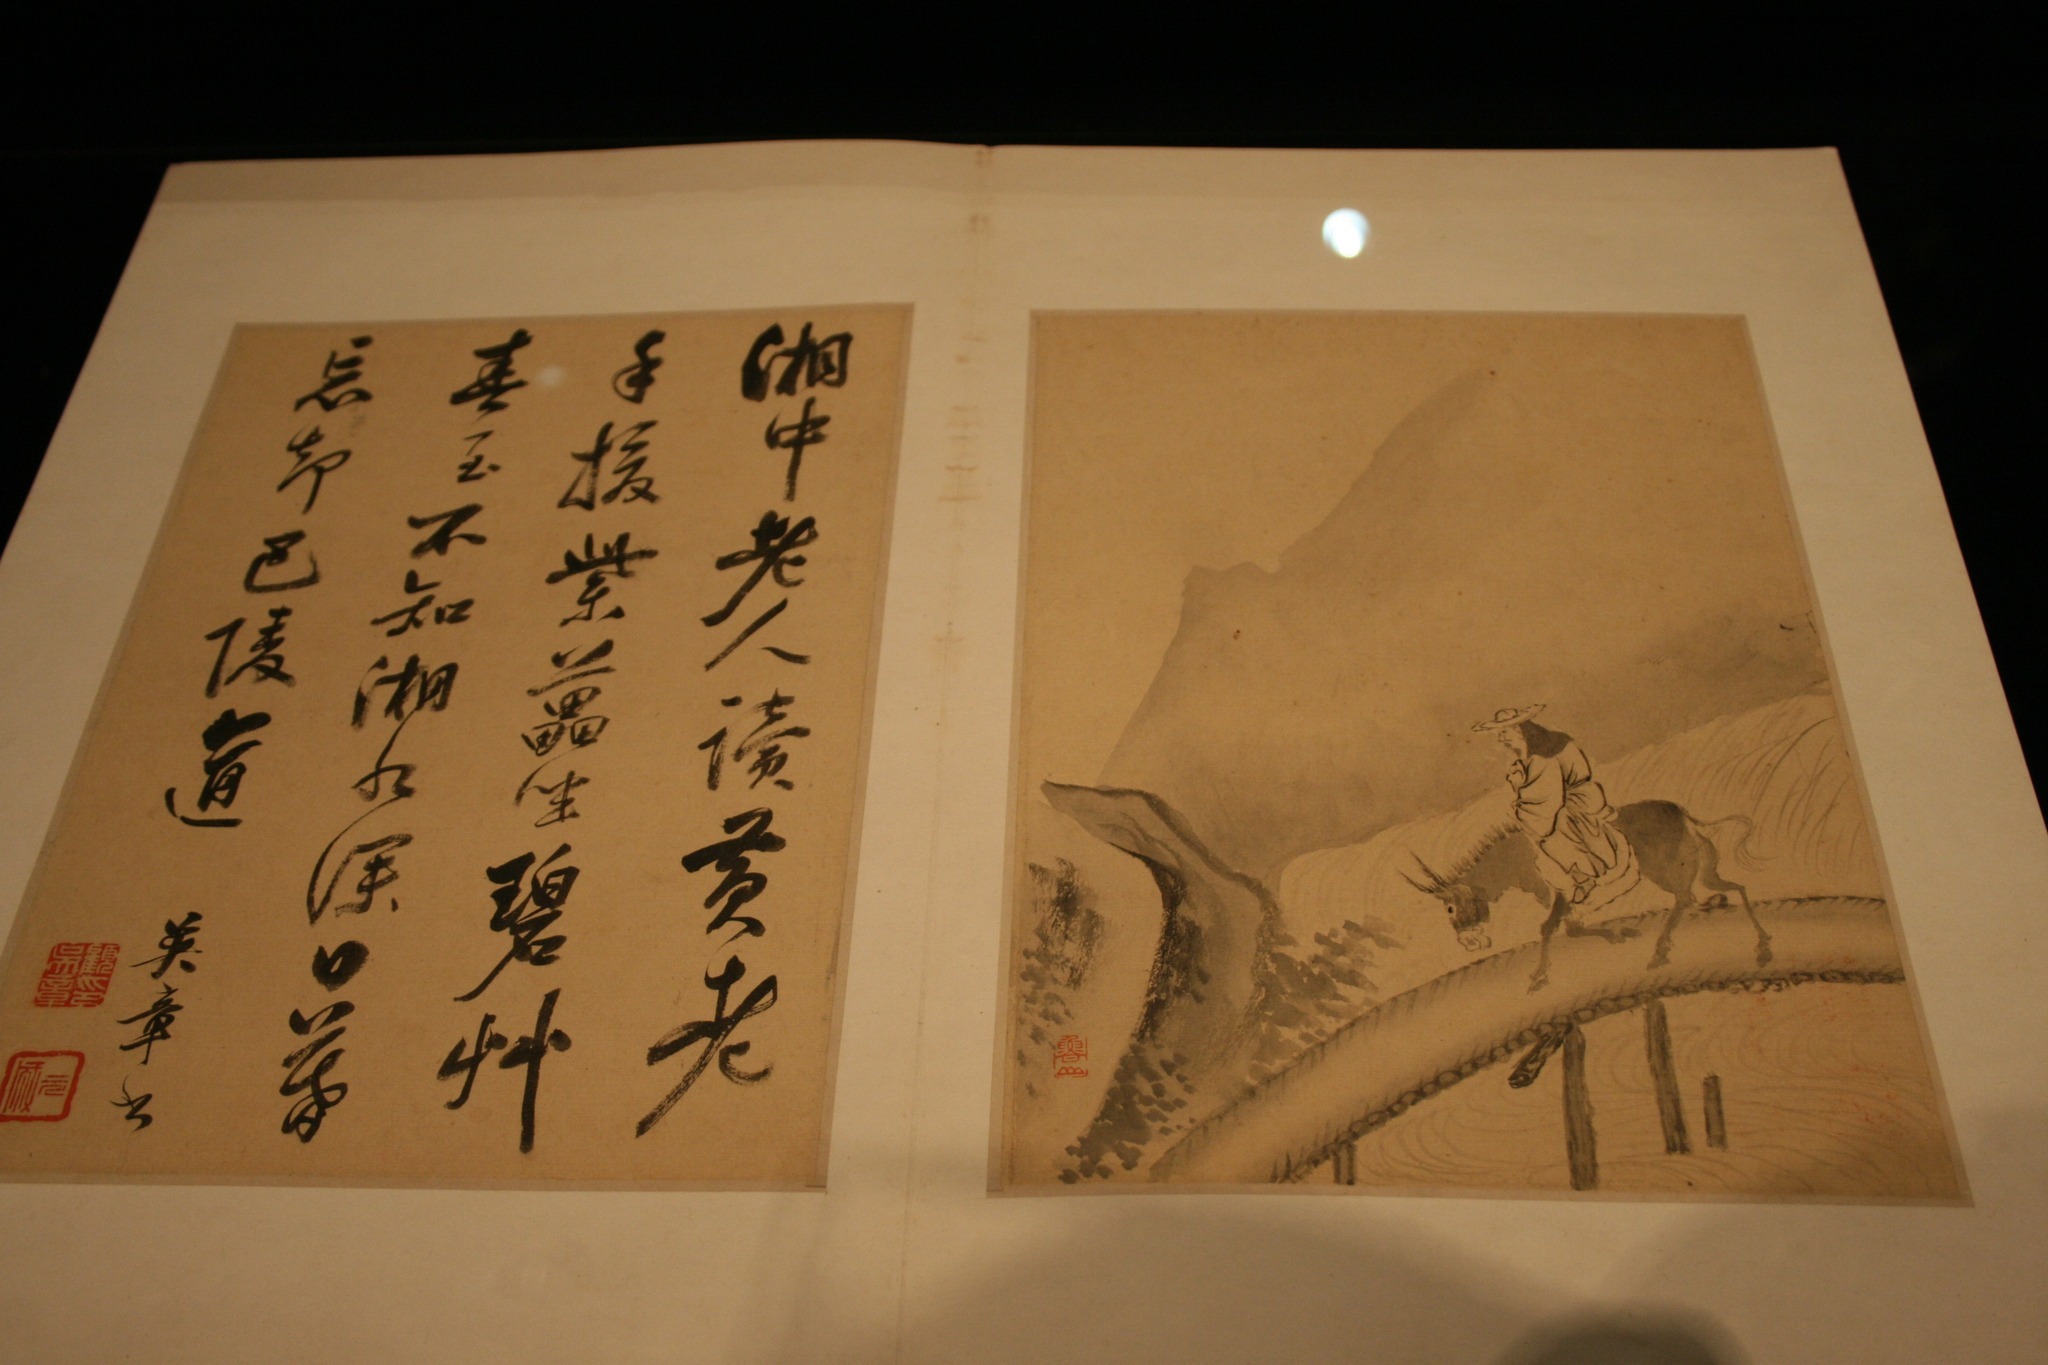 湘中老人讀黃老
手援紫藟坐碧艸
春至不知湘水深日暮
忘却巴陵道
英章書